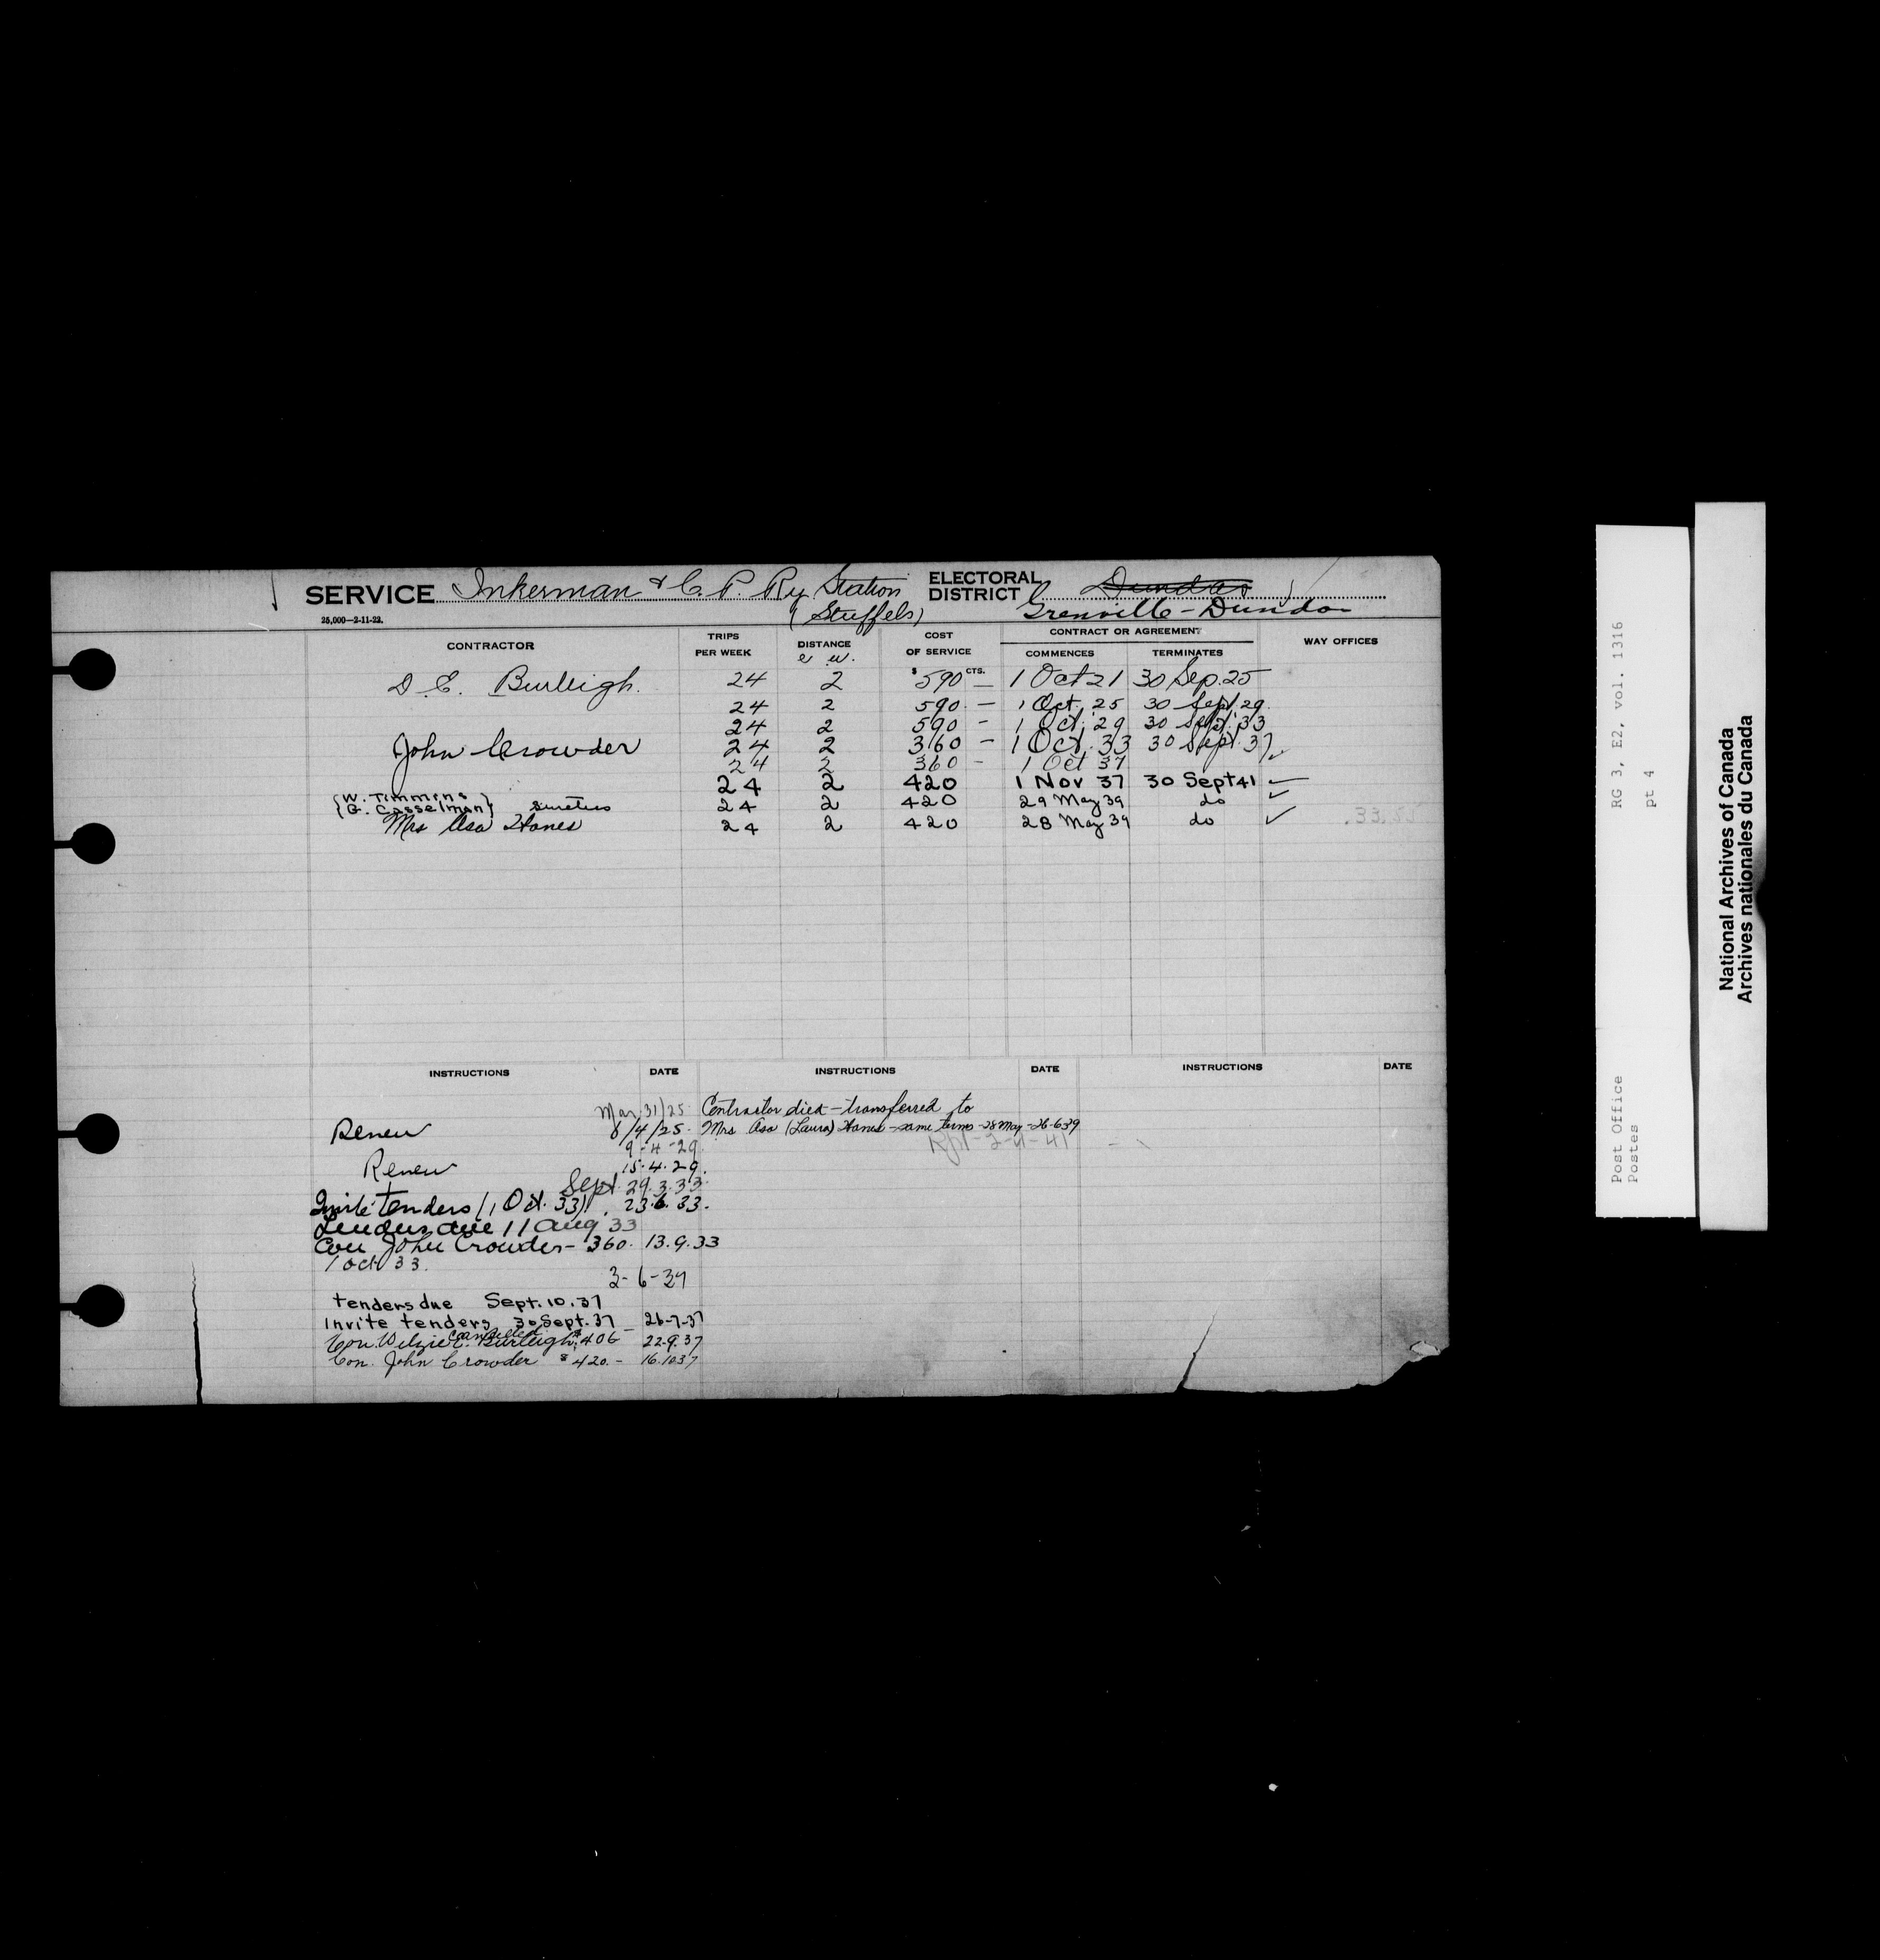 SERVICE Inkerman & C. P. Ry Station ELECTORAL DISTRICT Dundas
(Stuffels) Grenville-Dundas
25,000—2-11-22.
CONTRACTOR TRIPS PER WEEK DISTANCE COST OF SERVICE CONTRACT OR AGREEMENT WAY OFFICES
COMMENCES TERMINATES
e w. $ CTS.
D. E. Burleigh. 24 2 590 — 1 Oct 21 30 Sep. 25
24 2 590 — 1 Oct. 25 30 Sept. 29.
24 2 590 - 1 Oct. 29 30 Sept. 33
John Crowder 24 2 360 - 1 Oct. 33 30 Sept. 37.
24 2 360 - 1 Oct 37
24 2 420 1 Nov 37 30 Sept 41
{W. Timmins
G. Casselman} sureties 24 2 420 29 May 39 do
Mrs Asa Hanes 24 2 420 28 May 39 do
INSTRUCTIONS DATE INSTRUCTIONS DATE INSTRUCTIONS DATE
Mar 31/25
Renew 6/4/25.
9-4-29.
Renew 15.4.29.
Sept. 29.3.33.
Invite tenders (1 Oct. 33). 23.6.33.
Tenders due 11 Aug 33
Con John Crowder - 360. 13.9.33
1 Oct 33.
3-6-37
tenders due Sept. 10. 37
Invite tenders 30 Sept. 37 — 26-7-37
cancelled
Con. E. Burleigh $406 22.9.37
Con. John Crowder $420.- 16.10.37
Contractor died - transferred to
Mrs Asa (Laura) Hanes - same terms - 28 May - 26-6-39
2-4-41
Post Office
Postes
RG 3, E2, vol. 1316
pt 4
National Archives of Canada
Archives nationales du Canada